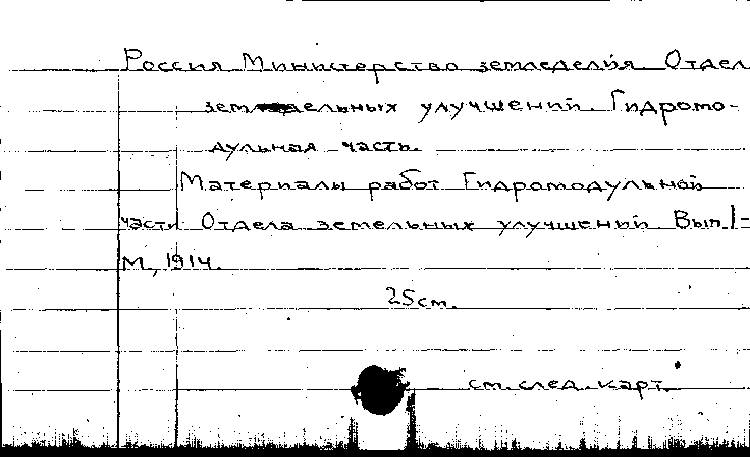 Россия Министерство земледелия. Отдел
земельных улучшений. Гидромо-
дульная часть.
Материалы работ Гидромодульной
части Отдела земельных улучшений. Вып. 1-
М., 1914.
25см.
см. след. карт.